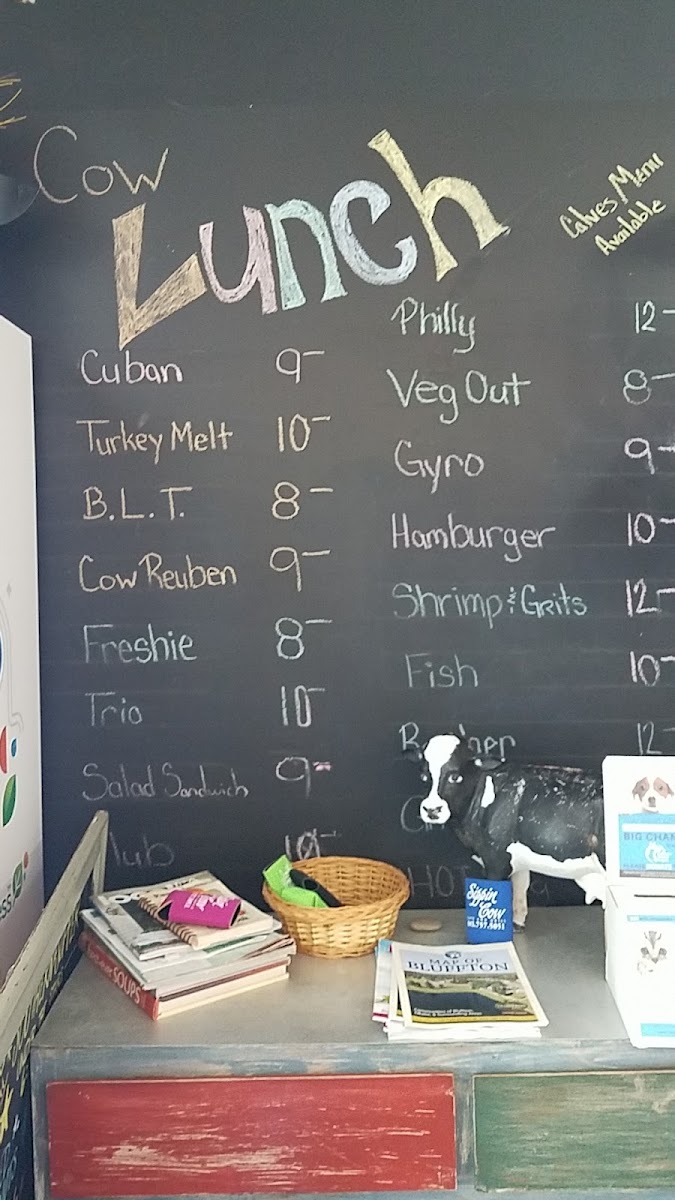 Cow
Lunch
Calves Menu
Available
Cuban 9-
Turkey Melt 10-
B.L.T. 8-
Cow Reuben 9-
Freshie 8-
Trio 10-
Salad Sandwich 9-
lub 10-
Philly 12-
Veg Out 8-
Gyro 9-
Hamburger 10-
Shrimp & Grits 12-
Fish 10-
12-
HO
Sippin
Cow
MAP OF
BLUFFTON
SOUPS
BIG CHAN